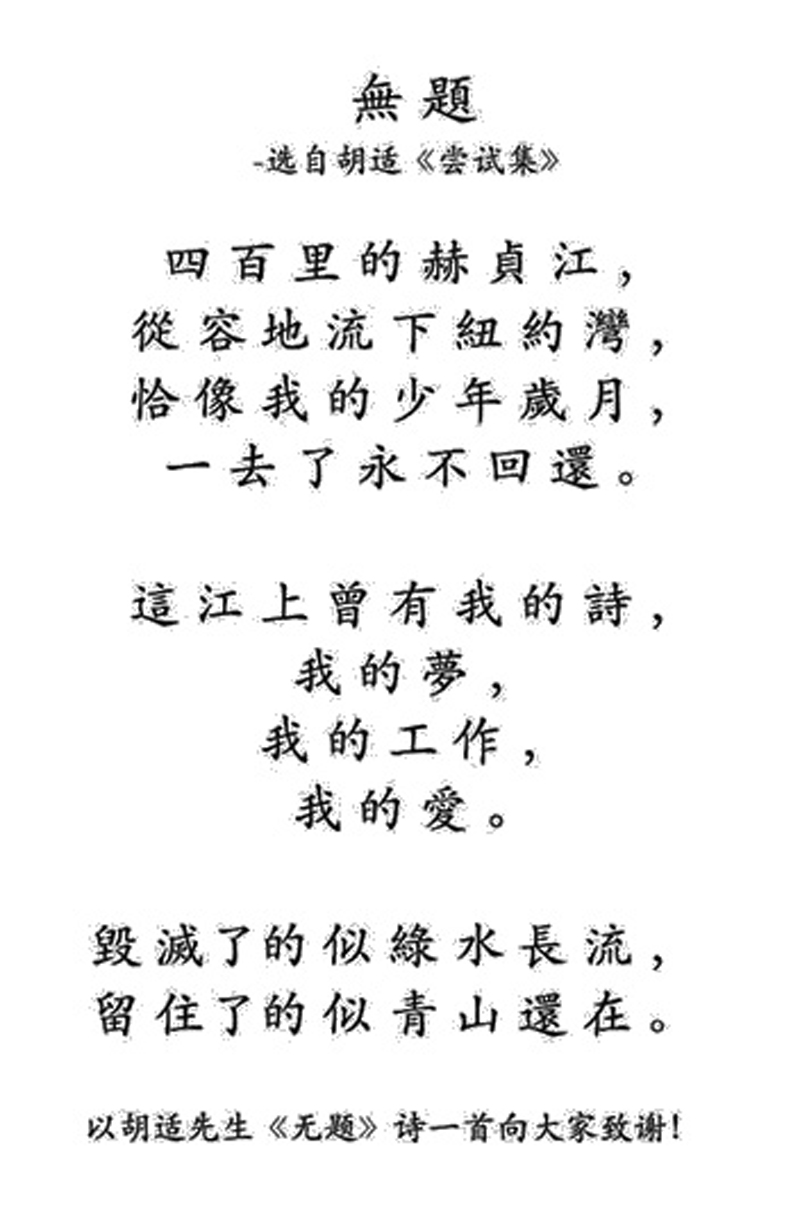 無題
-选自胡适《尝试集》
四百里的赫貞江，
從容地流下紐約灣，
恰像我的少年歲月，
一去了永不回還。
這江上曾有我的詩，
我的夢，
我的工作，
我的愛。
毀滅了的似綠水長流，
留住了的似青山還在。
以胡适先生《无题》诗一首向大家致谢！